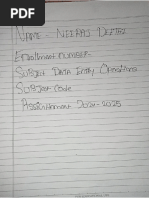 NAME - NEERAJ
Enrollment NUMBER
SUBJECT DATA ENTRY Operations
SUBJect Code
Assignment 2024-2025